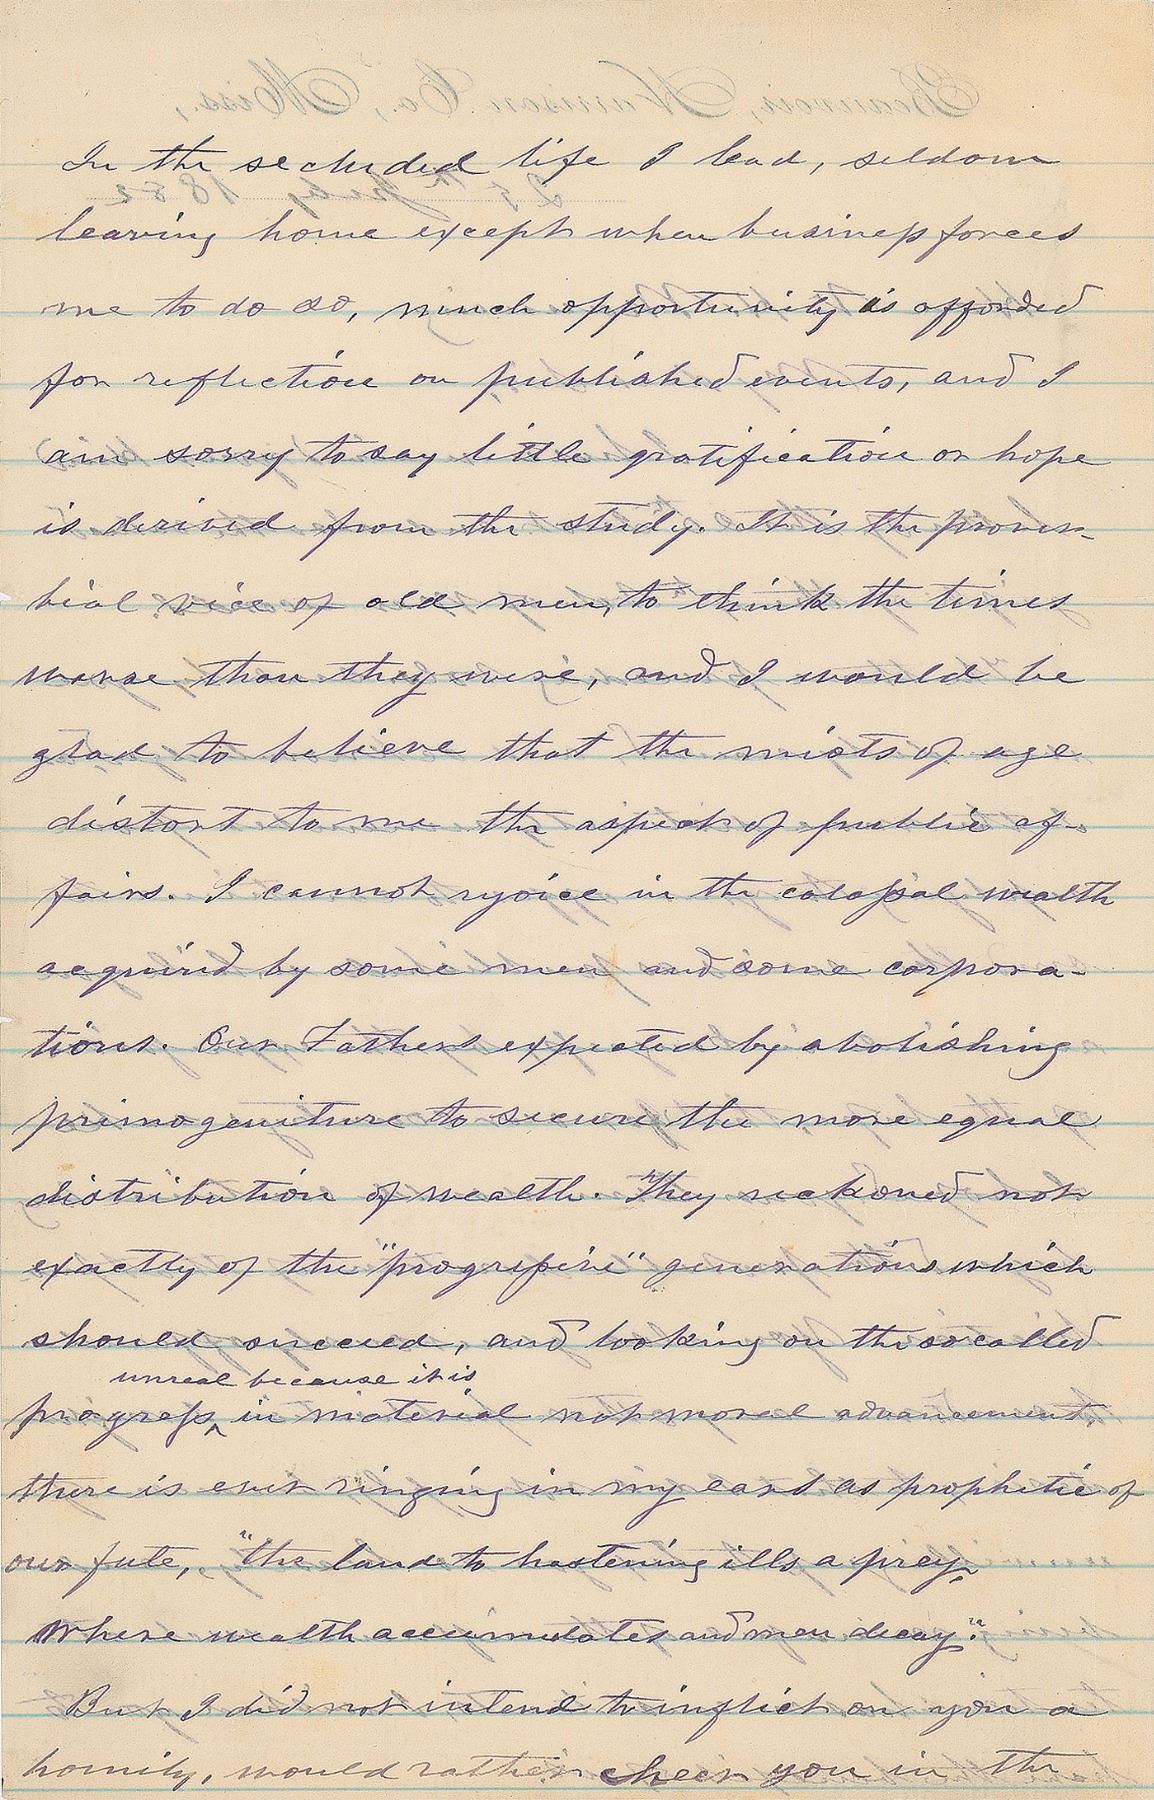 In the secluded life I lead, seldom
leaving home except when business forces
me to do so, much opportunity is afforded
for reflection on published events, and I
am sorry to say little gratification or hope
is derived from the study. It is the prover-
bial vice of old men, to think the times
worse than they were, and I would be
glad to believe that the mists of age
distort to me the aspect of public af-
fairs. I cannot rejoice in the colossal wealth
acquired by some men and some corpora-
tions. Our Fathers expected by abolishing
primogeniture to secure the more equal
distribution of wealth. They reckoned not
exactly of the "progressive" generations which
should succeed, and looking on the so called
unreal because it is
progress ‸ in material not moral advancement,
there is ever ringing in my ears as prophetic of
our fate, "the land to hastening ills a prey,
Where wealth accumulates and men decay".
But I did not intend to inflict on you a
homily, would rather cheer you in the